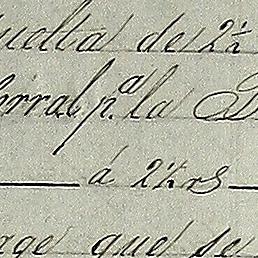 uelta de 2½
orral p.ª la
á 2½ rs
rge que se